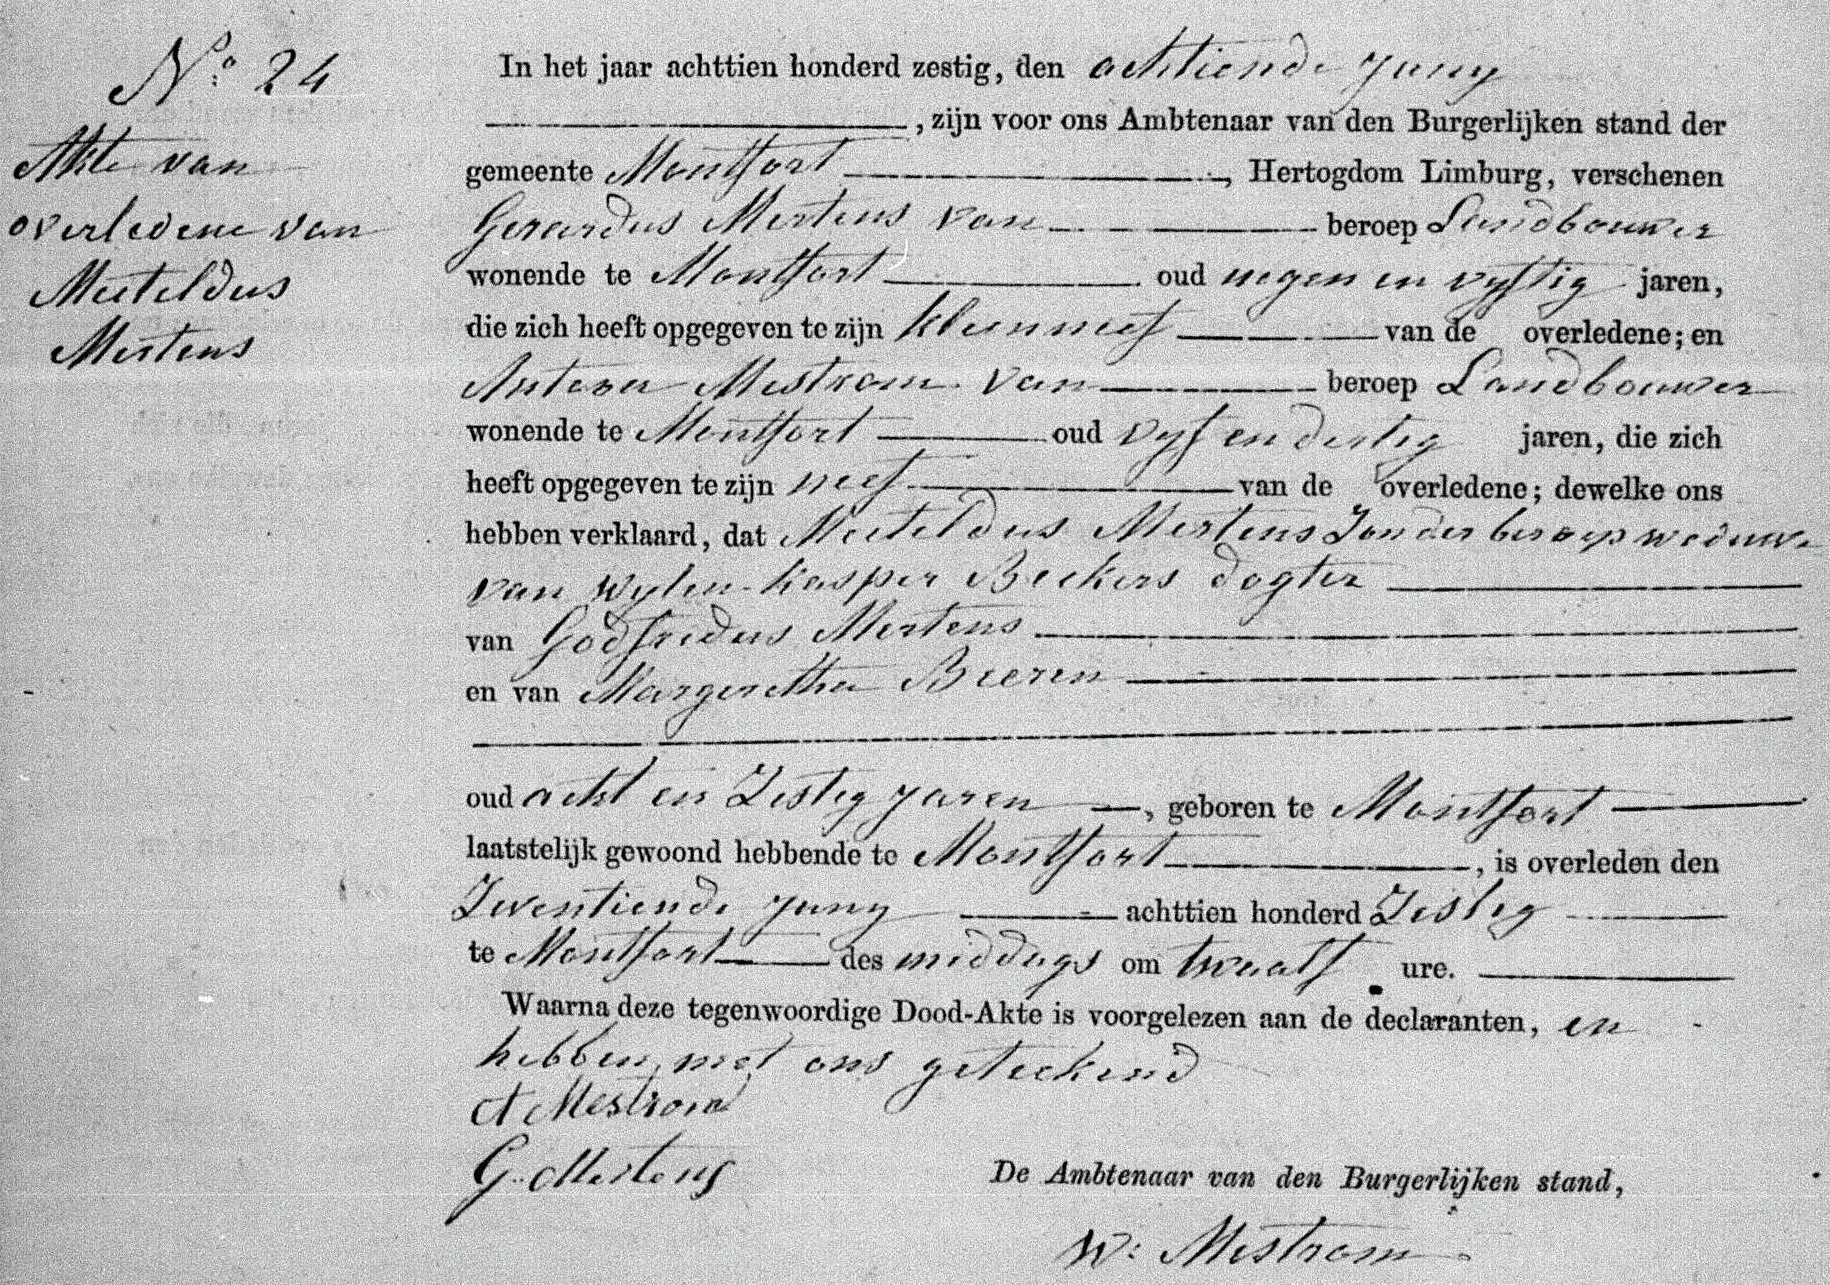 No. 24
Akte van
overledene van
Meeteldus
Mertens
In het jaar achttien honderd zestig, den achtiende Juny
, zijn voor ons Ambtenaar van den Burgerlijken stand der
gemeente Montfort, Hertogdom Limburg, verschenen
Gerardus Mertens van beroep Landbouwer
wonende te Montfort oud negen en vyftig jaren,
die zich heeft opgegeven te zijn kleinneef van de overledene; en
Antoon Mestrom van beroep Landbouwer
wonende te Montfort oud vyf en dertig jaren, die zich
heeft opgegeven te zijn neef van de overledene; dewelke ons
hebben verklaard, dat Meeteldus Mertens Zonder beroep weduwe
van wylen kasper Beckers dogter
van Godfredus Mertens
en van Margeretha Beeren
oud acht en Zestig jaren, geboren te Montfort
laatstelijk gewoond hebbende te Montfort, is overleden den
Zeventiende Juny achttien honderd Zestig
te Montfort des middags om twaalf ure.
Waarna deze tegenwoordige Dood-Akte is voorgelezen aan de declaranten, en
hebben met ons geteekend
A Mestrom
G. Mertens
De Ambtenaar van den Burgerlijken stand,
W: Mestrom